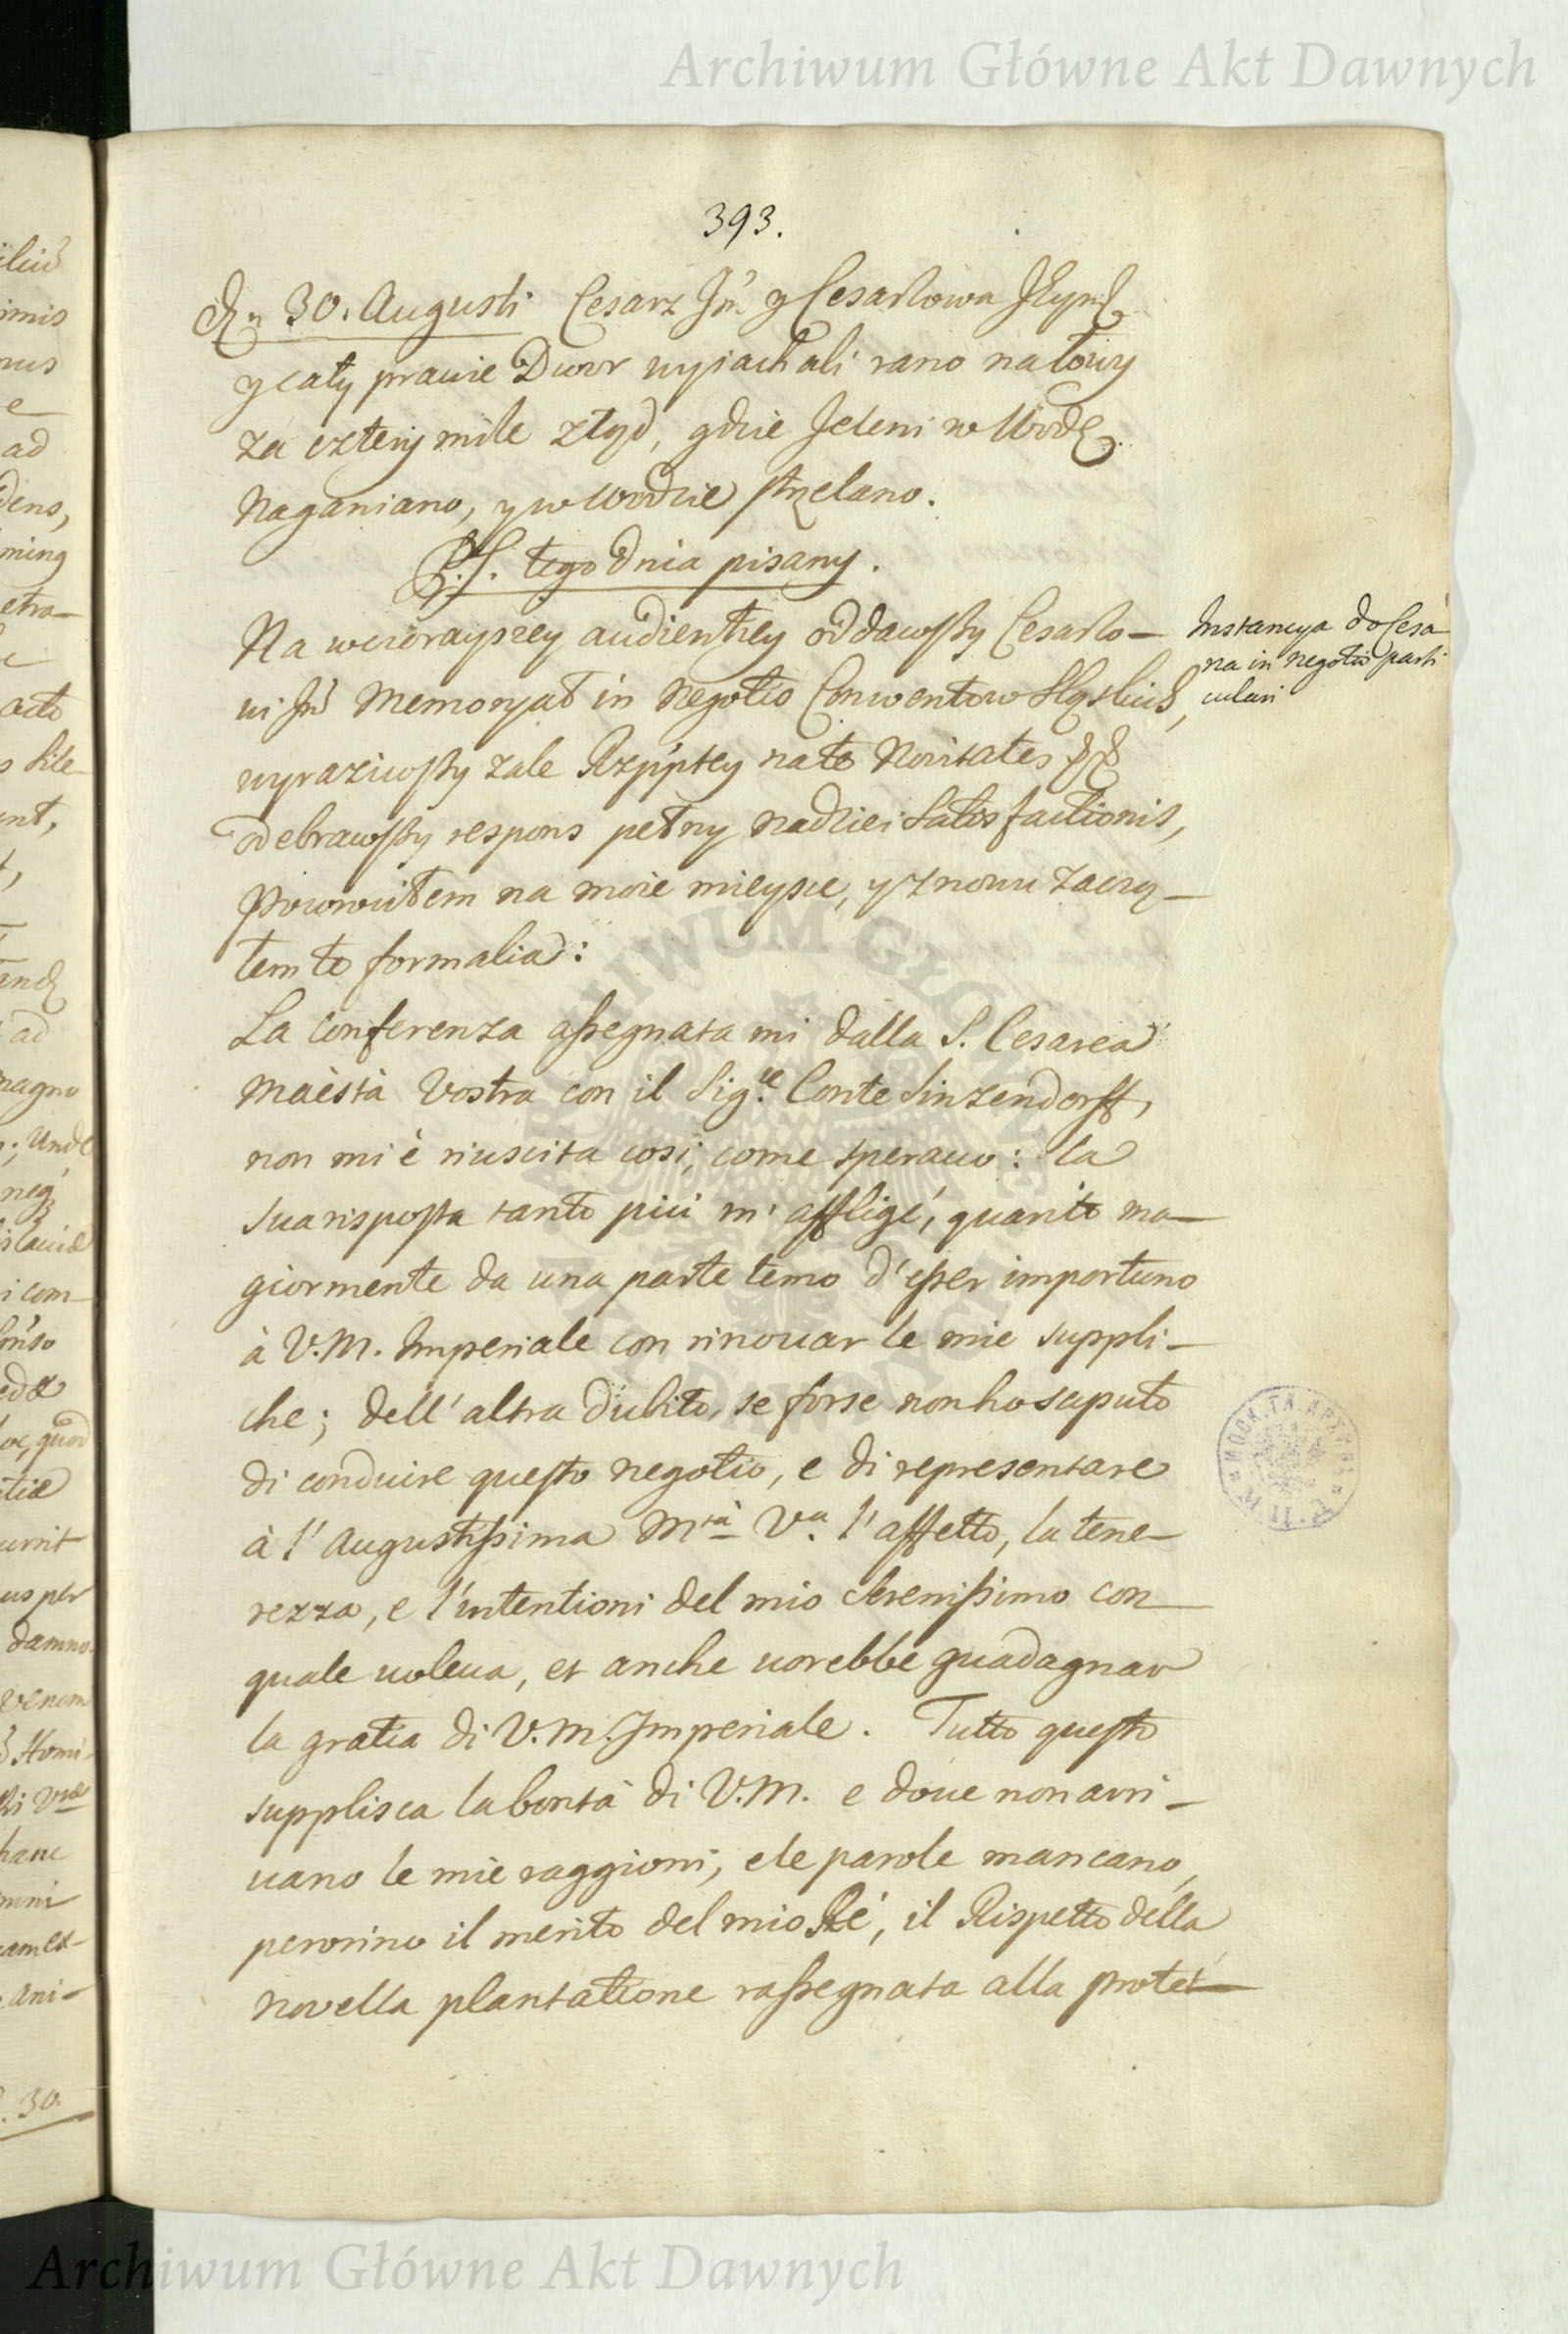 Archiwum Główne Akt Dawnych
393.
30. Augusti Cesarz Jm̃. y Cesarzowa
y cały prawie Dwor wyjachali rano na łowy
za cztery mile ztąd, gdzie Jeleni w Wodę
naganiano, y w Wodzie strzelano.
P.S. tego dnia pisany.
Na wczorayszey audientiey oddawszy Cesarzo-
wi Jm̃ Memoryał in negotio Conwentow Sląskich,
wyraziwszy żale Rzpptey na te Novitates
odebrawszy respons pełny nadziei Satisfactionis,
Powrociłem na moie mieysce, y znowu zaczą-
łem to formalia:
Instancya do Cesa
rza in negotio parti
culari
La conferenza assegnata mi dalla S. Cesarea
Maèstà Vostra con il Sig.re Conte Sinzendorff,
non mi è riuscita così, come sperauo: la
sua risposta tanto più m' affligé, quanto ma-
giormente da una parte temo d'esser importuno
à V.M. Imperiale con rinouar le mie suppli-
che; dell' altra dubito, se forse non ho saputo
di conduire questo negotio, e di representare
à l' Augustissima Mtà Va. l' affetto, la tene-
rezza, e l'intentioni del mio Serenissimo con
quale uoleua, et anche uorebbe guadagnar
la gratia di V.M. Imperiale. Tutto questo
supplisca la bontà di V.M. e doue non arri-
uano le mie raggioni, e le parole mancano,
perorino il merito del mio Ré, il Rispetto della
novella plantatione rassegnata alla protet-
Archiwum Główne Akt Dawnych